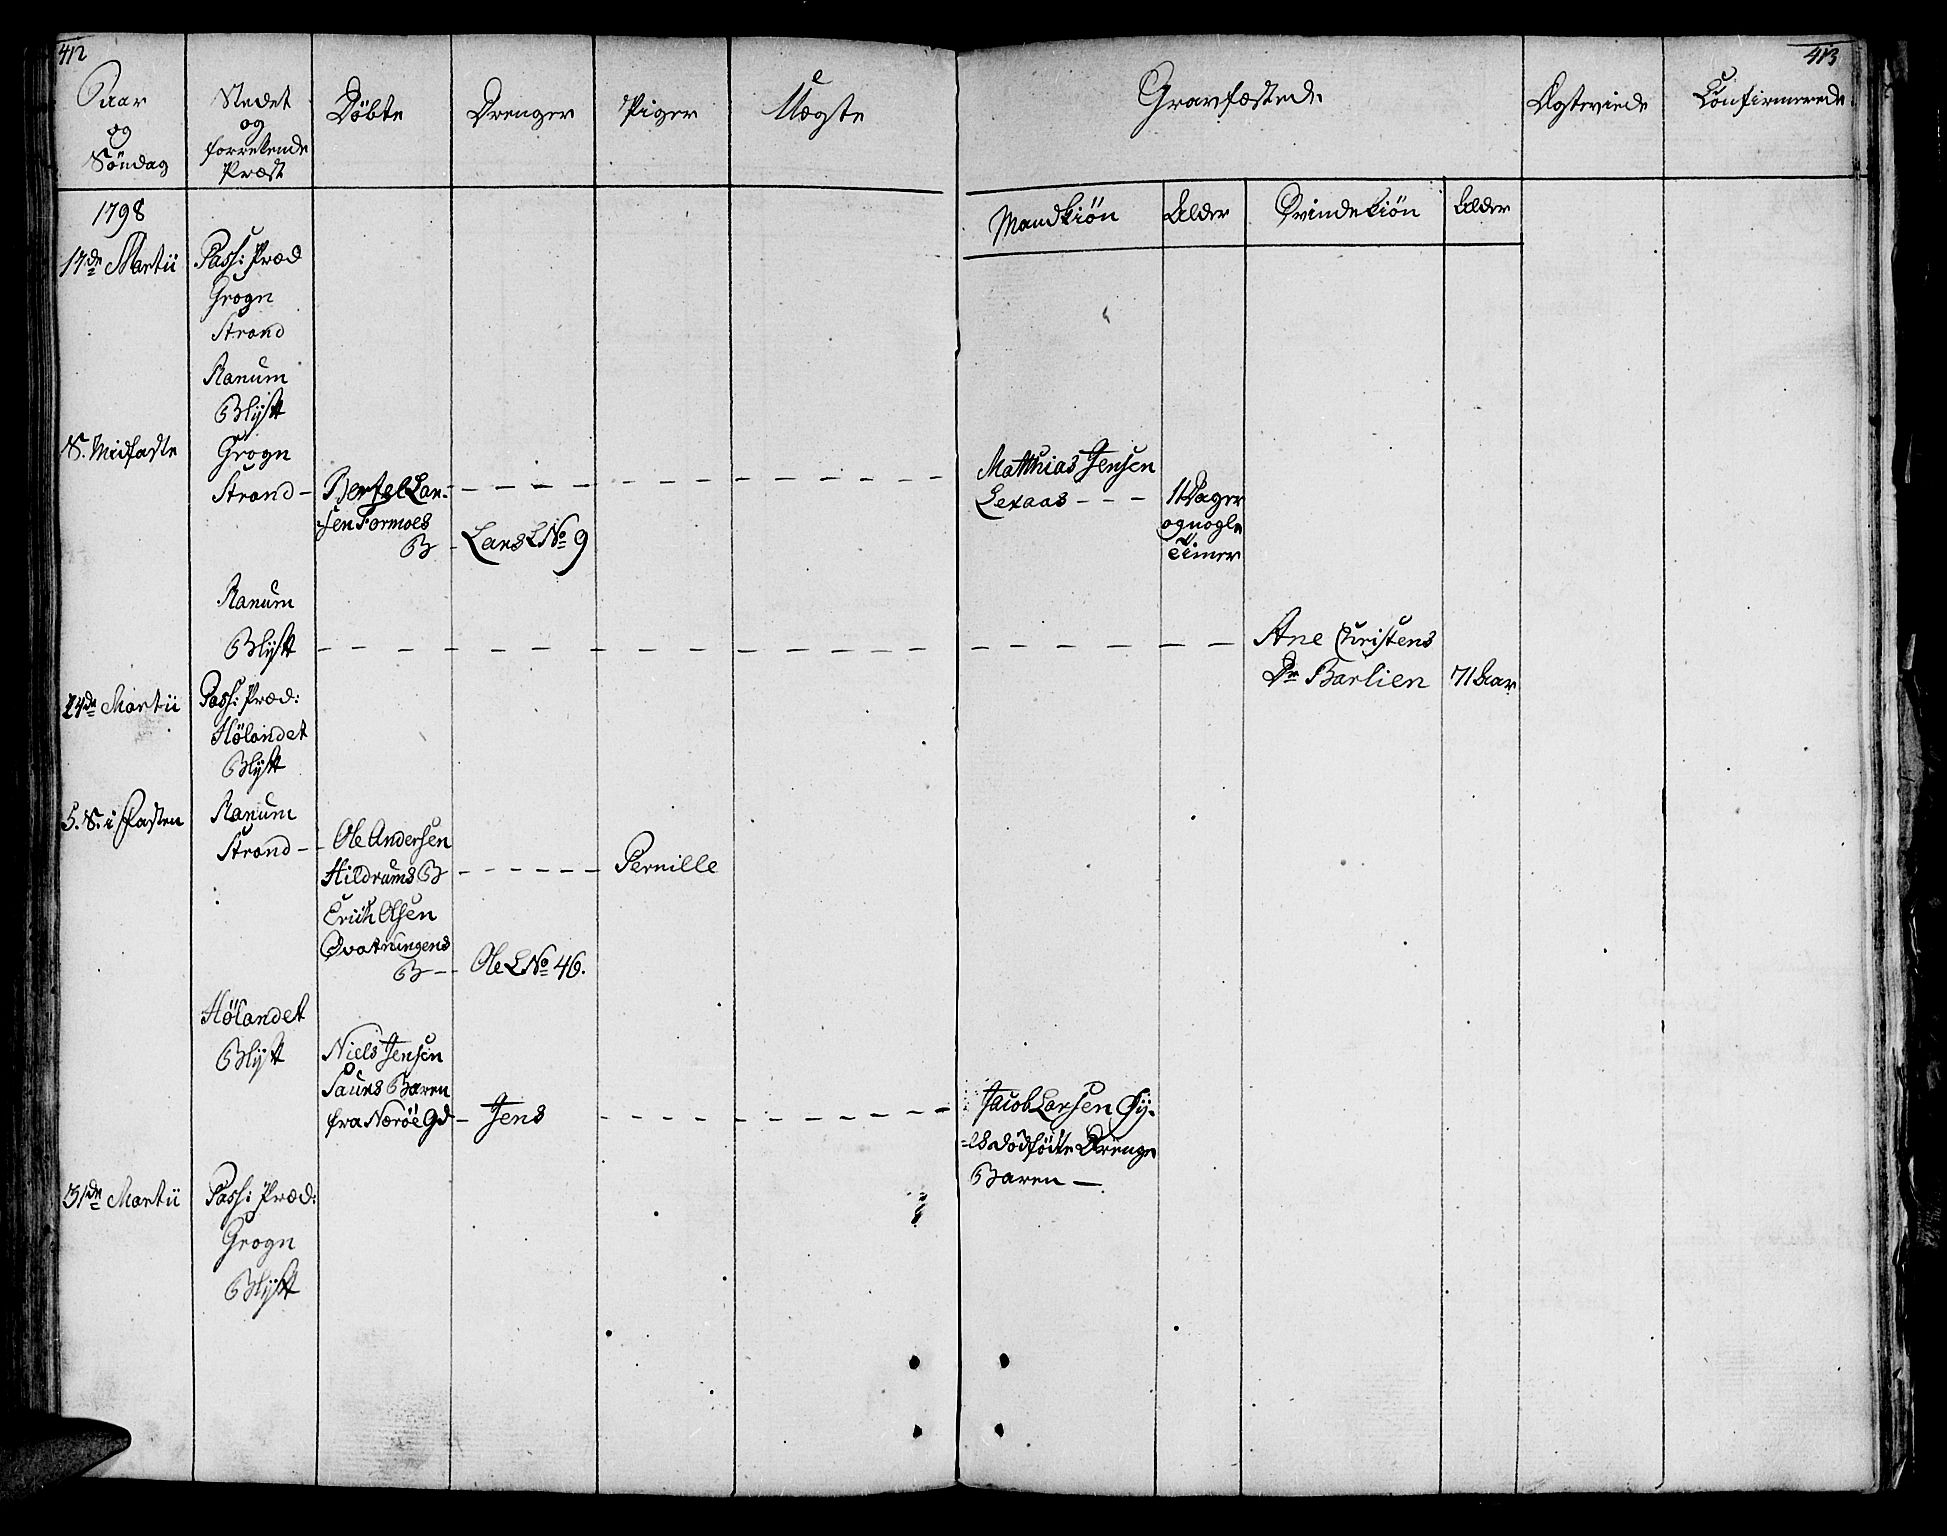 412
413
Aar
og
Söndag
Stedet
og
forretende
Præst
Döbte
Drenger
Piger
Uægte
Gravfæstede
Mandkiön
Alder
Qvindekiön
Alder
Ægteviede
Confirmerede
1798
17de Martii
Pass: Præd
Grogn
Strand
Ranum
Blyst
S. Midfaste
Grogn
Strand - Bertel Lar-
sen Formoes
B - Lars L No 9
Matthias Jensen
Lexaas - - -
11 Dager
og nogle
Timer
Ranum
Blyst
Ane Christens
Dr Barlien 71 Aar
24de Martii
Pass: Præd:
Hölandet
Blyst
5. S. i Fasten
Ranum
Strand - - Ole Andersen
Hildrums B - - - - - - Pernille
Erich Olsen
Qvatningens
B - - Ole L No 46.
Hölandet
Blyst
Niels Jensen
Saurs Baren
fra Næröe Gd - Jens
Jacob Larsen Öy-
=es dödfödte Drenge
Baren -
31de Martii
Pass: Præd:
Grogn
Blyst